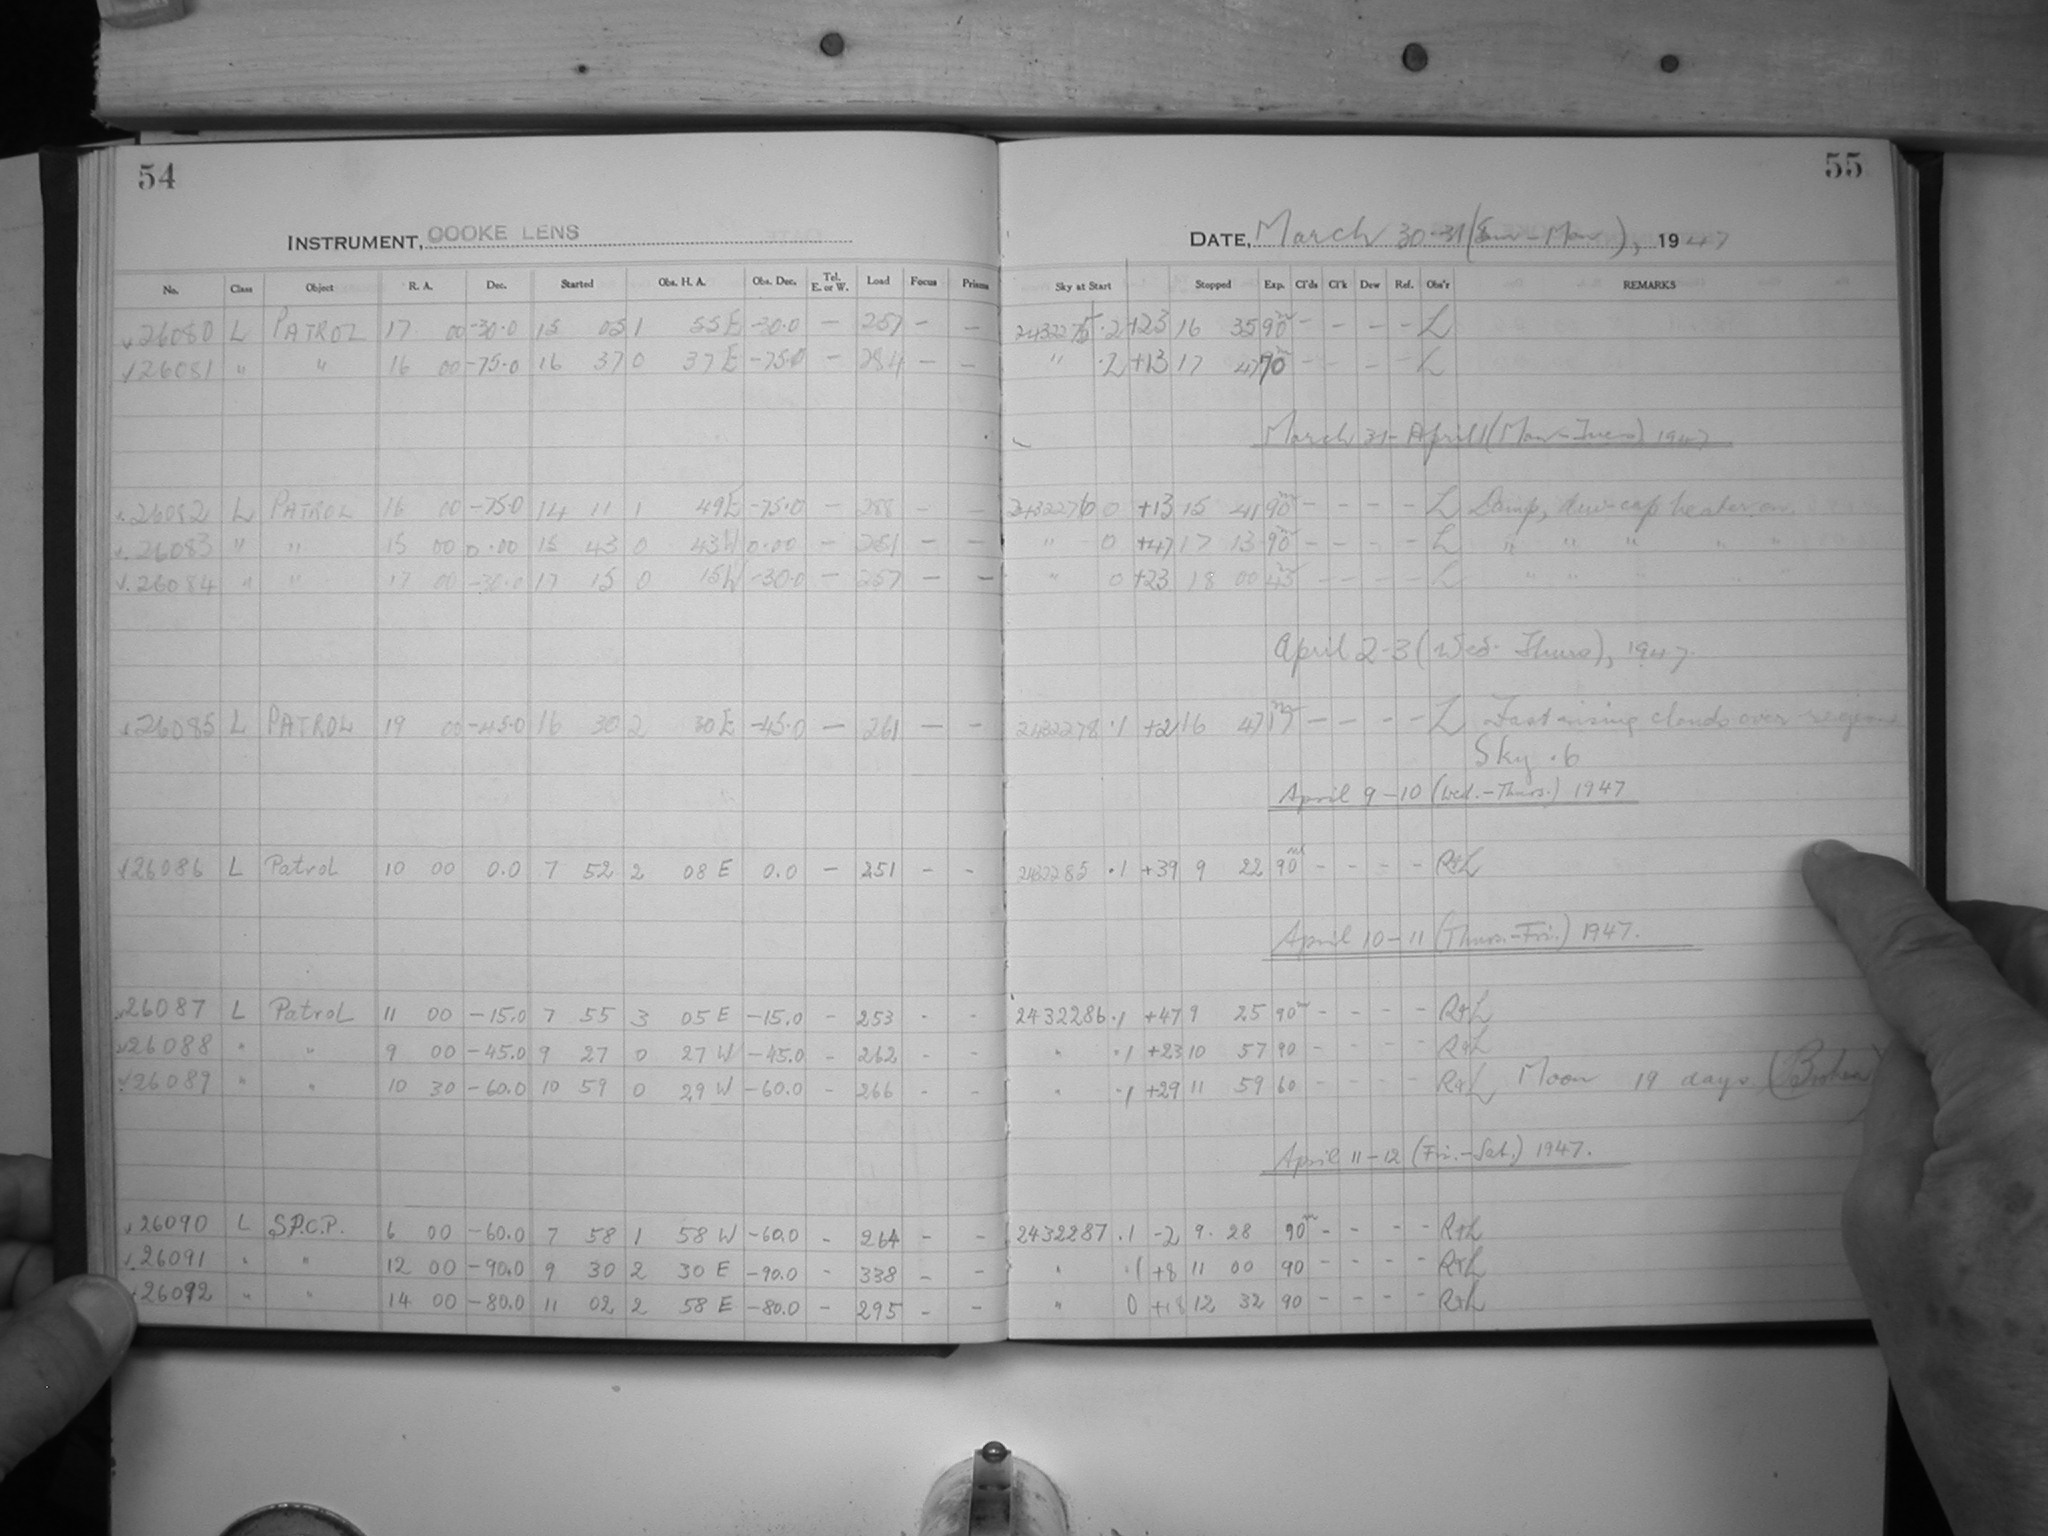 54
INSTRUMENT, COOKE LENS
No. Class Object R. A. Dec. Started Obs. H. A. Obs. Dec. Tel. E. or W. Load Focus Prisms
26080 L PATROL 17 00 -30.0 15 05 1 55 E -30.0 - 257 - -
26081 " " 16 00 -75.0 16 37 0 37 E -75.0 - 284 - -
26082 L PATROL 16 00 -75.0 14 11 1 49 E -75.0 - 288 - -
26083 " " 15 00 0.00 15 43 0 43 W 0.00 - 251 - -
26084 " " 17 00 -30.0 17 15 0 15 W -30.0 - 257 - -
26085 L PATROL 19 00 -45.0 16 30 2 30 E -45.0 - 261 - -
26086 L Patrol 10 00 0.0 7 52 2 08 E 0.0 - 251 - -
26087 L Patrol 11 00 -15.0 7 55 3 05 E -15.0 - 253 - -
26088 " " 9 00 -45.0 9 27 0 27 W -45.0 - 262 - -
26089 " " 10 30 -60.0 10 59 0 29 W -60.0 - 266 - -
26090 L S.P.C.P. 6 00 -60.0 7 58 1 58 W -60.0 - 264 - -
26091 " " 12 00 -90.0 9 30 2 30 E -90.0 - 338 - -
26092 " " 14 00 -80.0 11 02 2 58 E -80.0 - 295 - -
55
DATE, March 30-31 (Sun-Mon), 1947
Sky at Start Stopped Exp. Cl'ds Cl'k Dew Ref. Obs'r REMARKS
2432275 .2 +23 16 35 90m - - - - L
" .2 +13 17 47 70m - - - - L
March 31-April 1 (Mon-Tues) 1947
2432276 0 +13 15 41 90m - - - - L Damp, dew-cap heater on
" 0 +47 17 13 90m - - - - L " " " " "
" 0 +23 18 00 45m - - - - L " " " " "
April 2-3 (Wed-Thurs), 1947
2432278 .1 +21 16 47 17m - - - - L Fast rising clouds over region
Sky .6
April 9-10 (Wed.-Thurs.) 1947
2432285 .1 +39 9 22 90m - - - - R+L
April 10-11 (Thurs.-Fri.) 1947.
2432286 .1 +47 9 25 90m - - - - R+L
" .1 +23 10 57 90 - - - - R+L
" .1 +29 11 59 60 - - - - R+L Moon 19 days (Broken)
April 11-12 (Fri.-Sat.) 1947.
2432287 .1 -2 9. 28 90m - - - - R+L
" .1 +8 11 00 90 - - - - R+L
" 0 +18 12 32 90 - - - - R+L